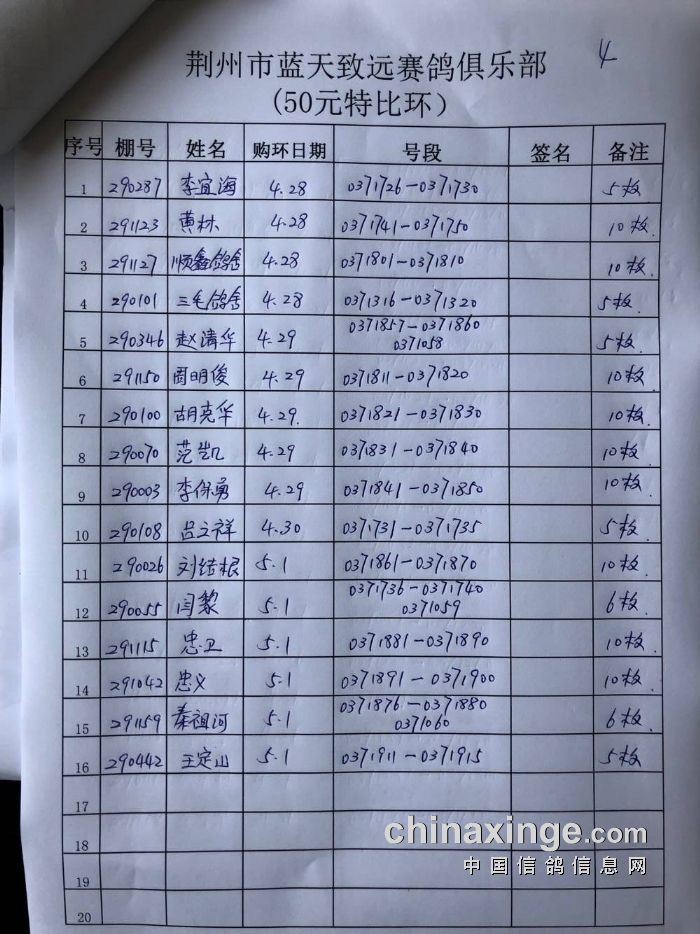 4
荆州市蓝天致远赛鸽俱乐部
(50元特比环)
序号 棚号 姓名 购环日期 号段 签名 备注
1 290287 李宜海 4.28 0371726-0371730 5枚
2 291123 黄林 4.28 0371741-0371750 10枚.
3 291127 顺鑫鸽舍 4.28 0371801-0371810 10枚.
4 290101 三毛鸽舍 4.28 0371316-0371320 5枚.
5 290346 赵清华 4.29 0371857-0371860 5枚.
0371058
6 291150 周明俊 4.29 0371811-0371820 10枚.
7 290100 胡克华 4.29. 0371821-0371830 10枚.
8 290070 范凯 4.29 0371831-0371840 10枚.
9 290003 李保勇 4.29 0371841-0371850 10枚.
10 290108 吕立祥 4.30 0371731-0371735 5枚.
11 290026 刘结根 5.1 0371861-0371870 10枚.
12 290055 闫黎 5.1 0371736-0371740 6枚.
0371059
13 291115 忠卫 5.1 0371881-0371890 10枚.
14 291042 忠义 5.1 0371891-0371900 10枚.
15 291159 秦祖河 5.1 0371876-0371880 6枚.
0371060
16 290442 王定山 5.1 0371911-0371915 5枚.
17
18
19
20
chinaxinge.com
中国信鸽信息网